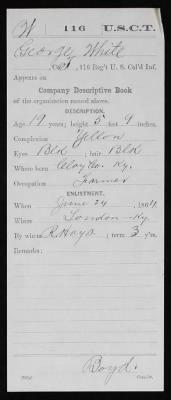 W 116 U.S.C.T.
George White
, Co. , 116 Reg't U. S. Col'd Inf.
Appears on
Company Descriptive Book
of the organization named above.
DESCRIPTION.
Age 19 years; height 5 feet 9 inches.
Complexion Yellow
Eyes Bld ; hair Bld
Where born Clay Co. Ky.
Occupation Farmer
ENLISTMENT.
When June 24 , 1864.
Where London Ky.
By whom R Hays ; term 3 y'rs.
Remarks:
Boyd.